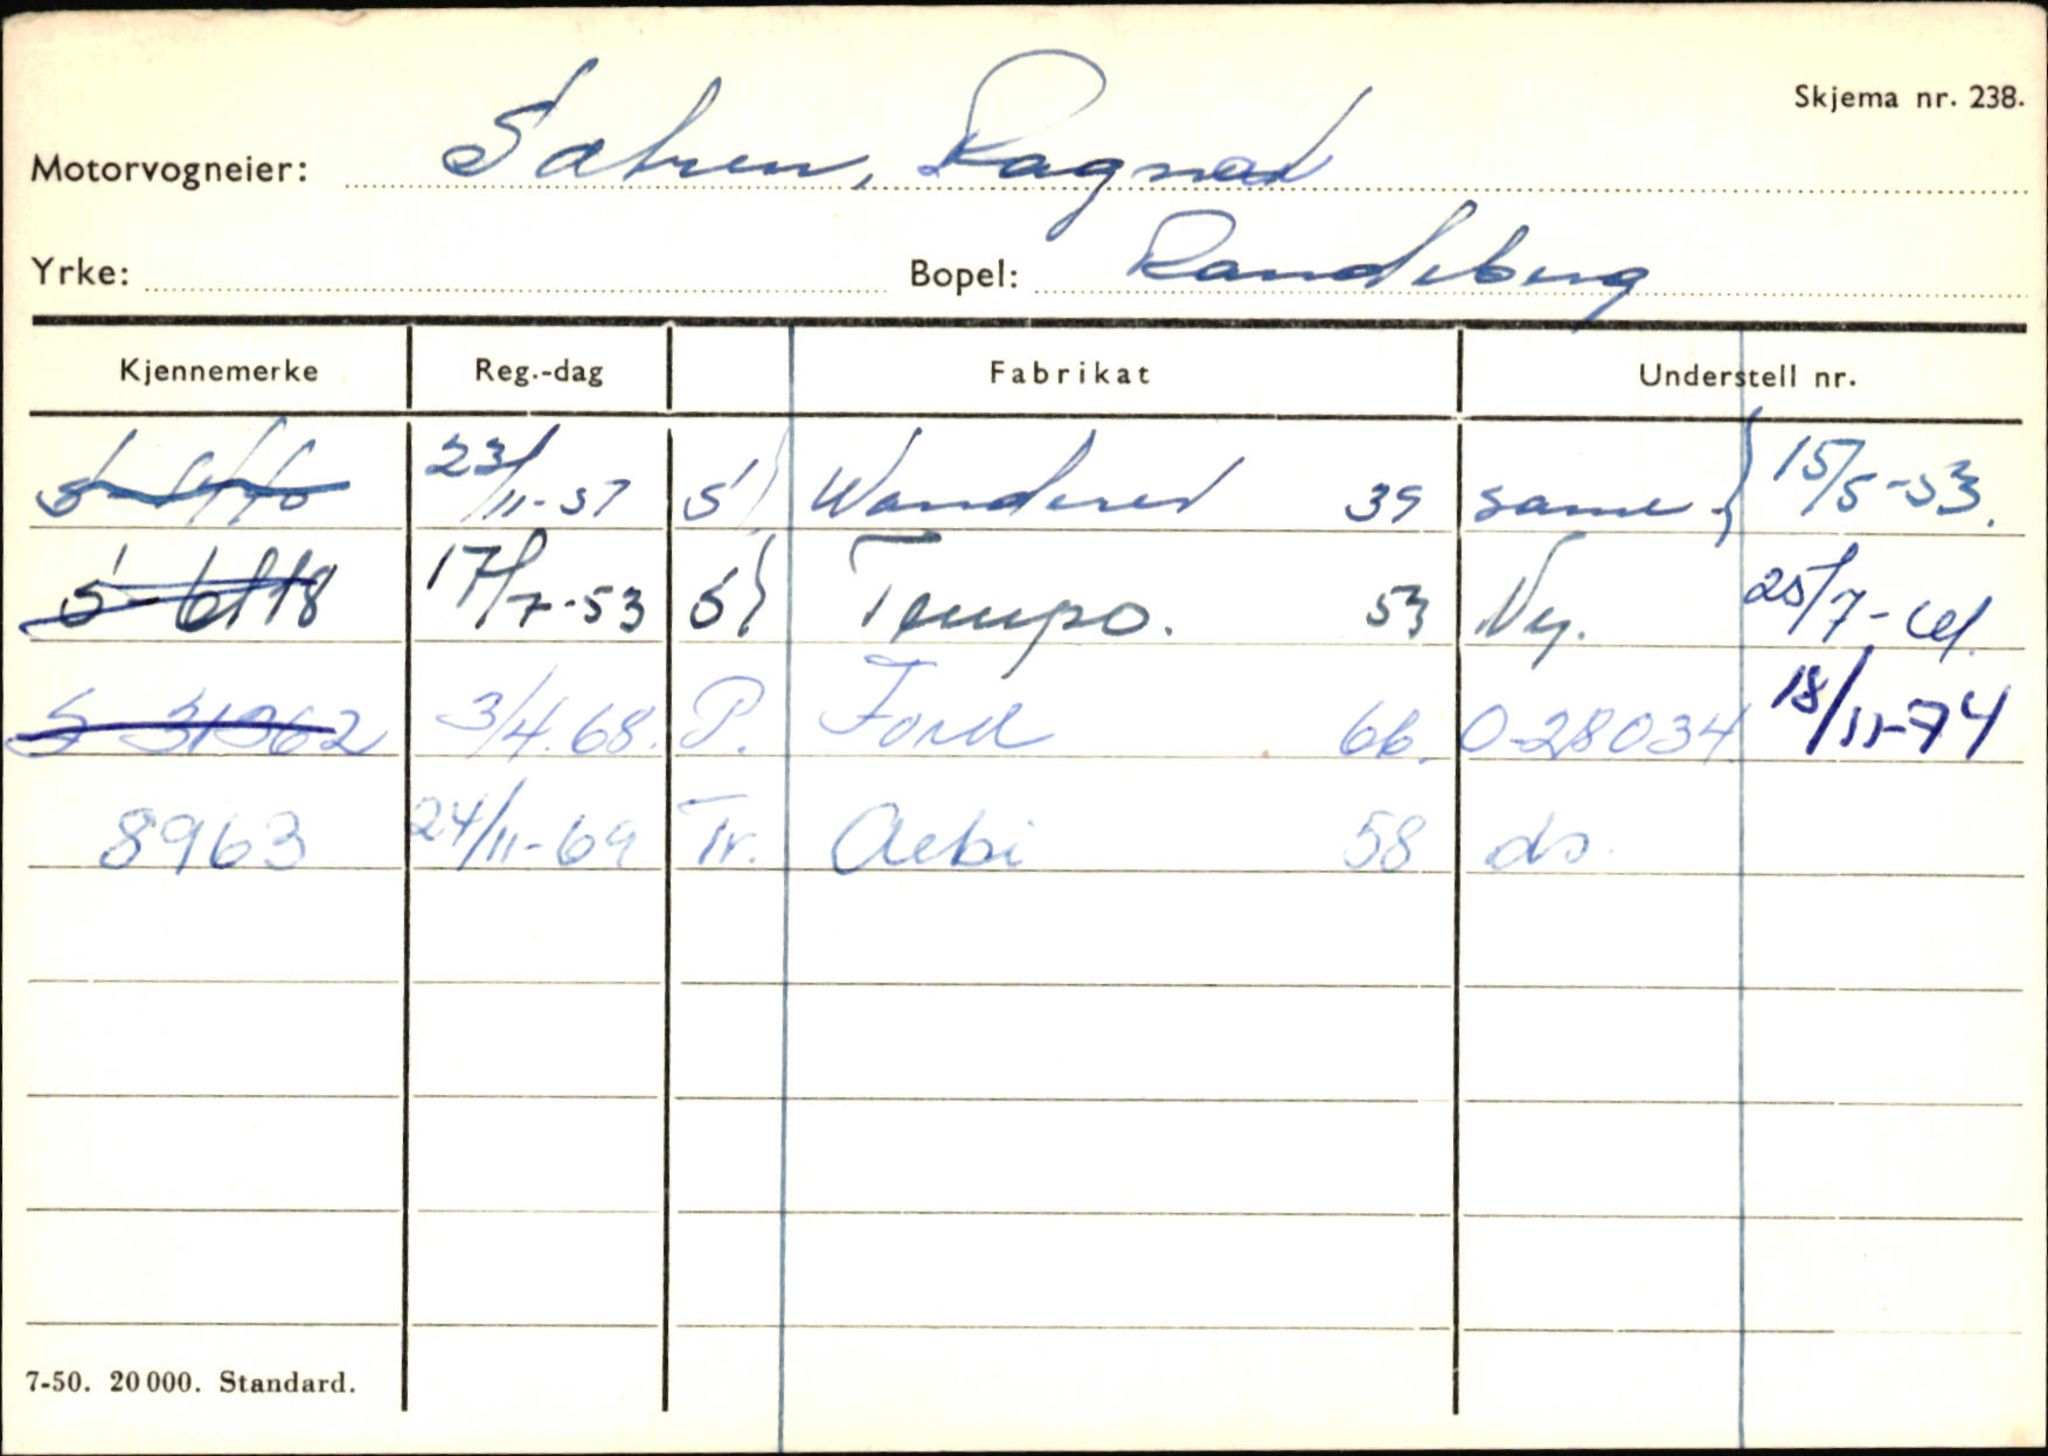 Skjema nr. 238.
Motorvogneier: Sætren, Ragnar
Yrke: Bopel: Randeberg
Kjennemerke Reg.-dag Fabrikat Understell nr.
23/11-51 S) Wanderer 39 same 15/5-53.
S-6118 17/7-53 S) Tempo. 53 Ny. 25/7-61.
S-31962 3/4.68. P. Ford 66. 0-28034 18/11-74
8963 24/11-69 Tr. Aebi 58 do.
7-50. 20 000. Standard.